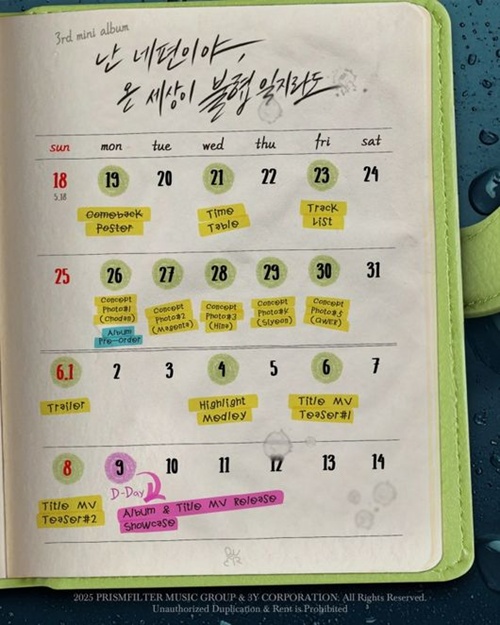 3rd mini album
난 네편이야,
온 세상이 불협일지라도
sun mon tue wed thu fri sat
18 19 20 21 22 23 24
5.18
Comeback Poster
Time Table
Track List
25 26 27 28 29 30 31
Concept Photo#1 (Chodan)
Album Pre-order
Concept Photo#2 (Magenta)
Concept Photo#3 (Hina)
Concept Photo#4 (Siyeon)
Concept Photo#5 (QWER)
6.1 2 3 4 5 6 7
Trailer
Highlight Medley
Title MV Teaser#1
8 9 10 11 12 13 14
D-Day
Title MV Teaser#2
Album & Title MV Release
Showcase
2025 PRISMFILTER MUSIC GROUP & 3Y CORPORATION. All Rights Reserved.
Unauthorized Duplication & Rent is Prohibited